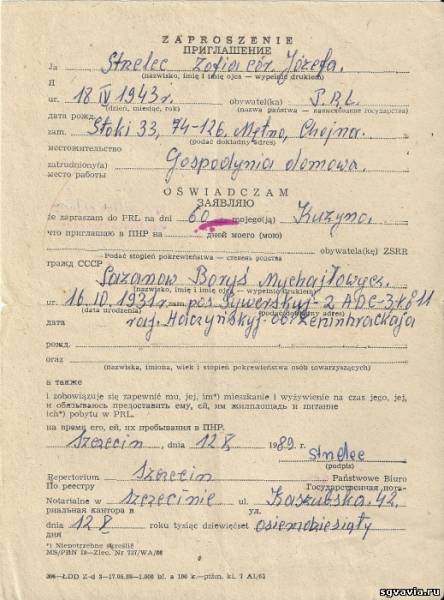 ZAPROSZENIE
ПРИГЛАШЕНИЕ
Ja Strelec Zofia cór. Józefa.
(nazwisko, imię i imię ojca — wypełnić drukiem)
Я
ur. 18 IV 1943 r. obywatel(ka) P.R.L.
(dzień, miesiąc, rok) (nazwa państwa — наименование государства)
дата рожд.
zam. Stoki 33, 74-126. Mętno, Chojna.
(podać dokładny adres)
местожительство
zatrudniony(a) Gospodynia domowa.
место работы
OŚWIADCZAM
ЗАЯВЛЯЮ
że zapraszam do PRL na dni 60 mojego(ją) Kuzyna.
что приглашаю в ПНР на дней моего (мою)
obywatela(kę) ZSRR
Podać stopień pokrewieństwa — степень родства
гражд СССР
Sazanow Boryś Mychajłowycz
(nazwisko, imię i imię ojca — wypełnić drukiem)
ur. 16.10.1931 r. zam. pos. Sywerskyj-2 ADC-3 k8 11
(data urodzenia)
дата raj. Hatczynśkyj. obł. Leninhradśkaja
рожд.
oraz
(nazwiska, imiona, wiek i stopień pokrewieństwa osób towarzyszących)
а также
i zobowiązuję się zapewnić mu, jej, im*) mieszkanie i wyżywienie na czas jego, jej,
и обязываюсь предоставить ему, ей, им жилплощадь и питание
ich*) pobytu w PRL.
на время его, ей, их пребывания в ПНР.
Szczecin, dnia 12 X 1989 r.
Strelec
(podpis)
Repertorium Szczecin Państwowe Biuro
По реестру Государственная нота-
Notarialne w Szczecinie ul. Kaszubska 42.
риальная кантора в ул.
dnia 12 X roku tysiąc dziewięćset osiemdziesiąty
*) Niepotrzebne skreślić
MS/PBN 18-Zlec. Nr 727/WA/88
sgvavia.ru